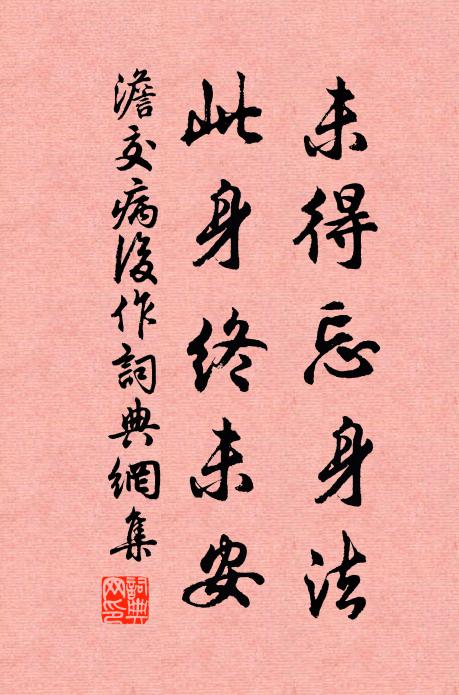 未得忘身法
此身終未安
澹交病後作詞典網集
詞典
网印